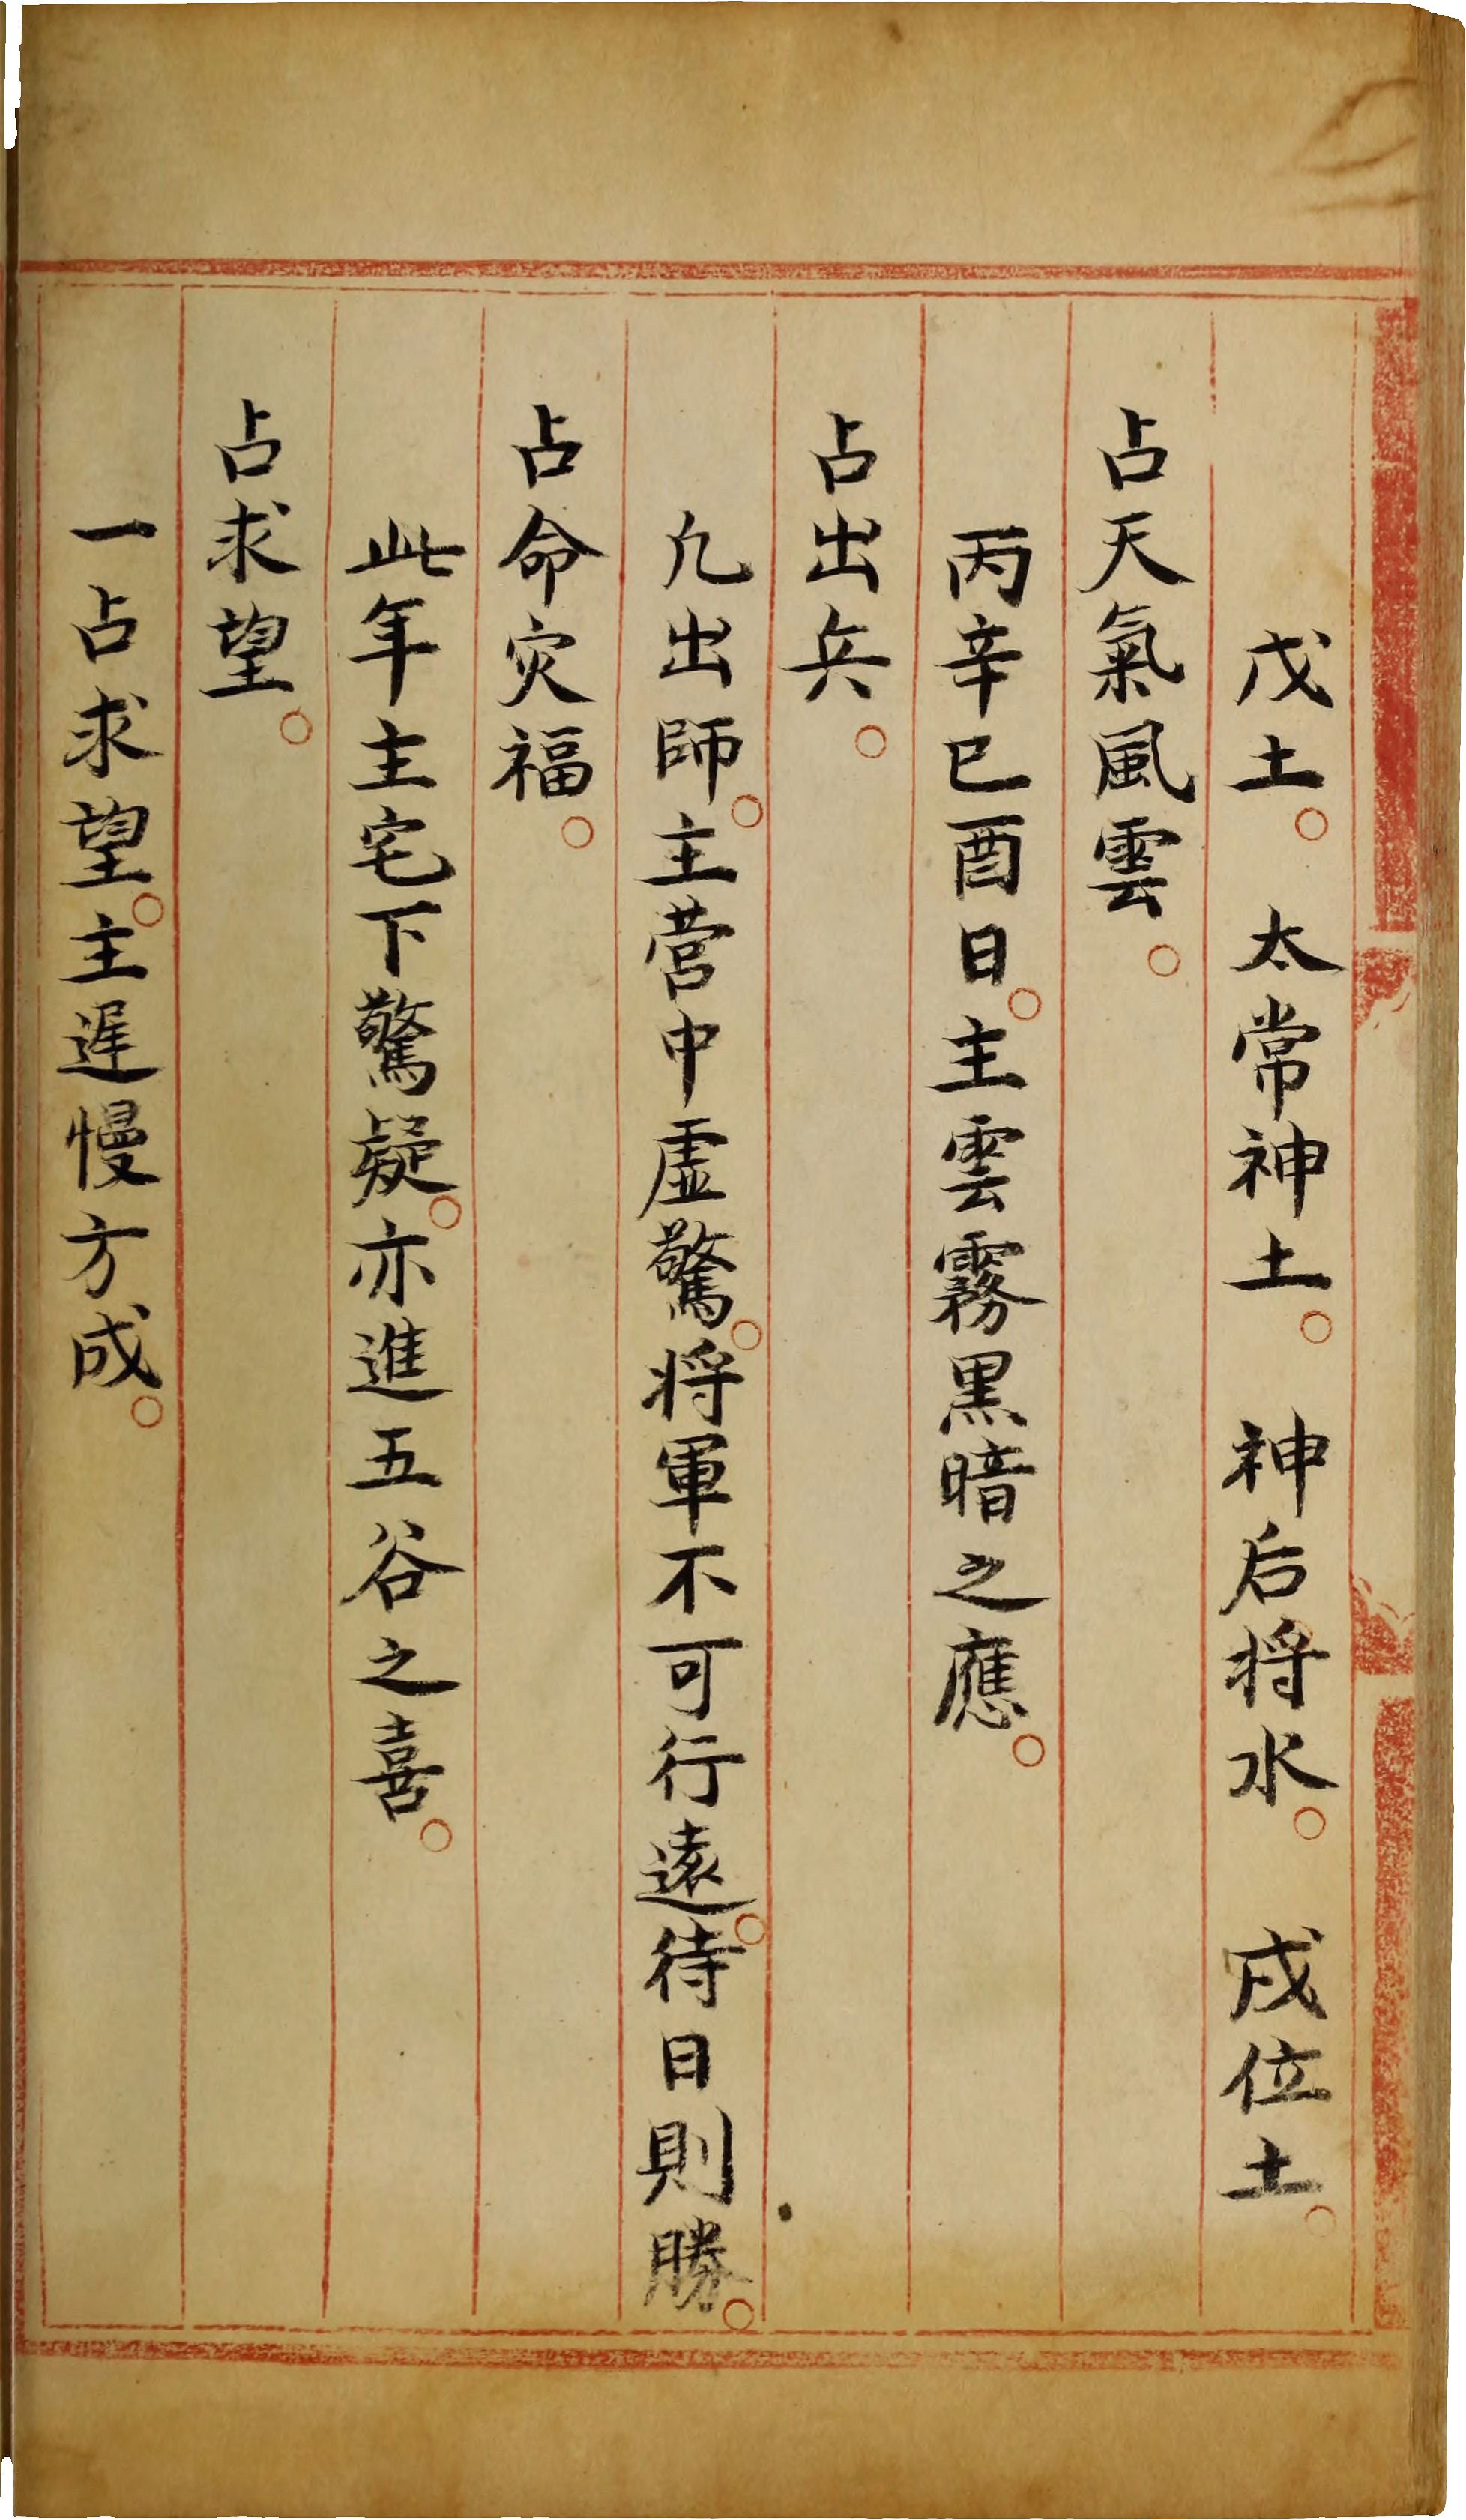 戊土。太常神土。神后将水。戌位土。
占天氣風雲。
丙辛巳酉日。主雲霧黑暗之應。
占出兵。
凢出師。主营中虚驚。将軍不可行遠。待日則勝。
占命灾福。
此年主宅下驚疑。亦進五谷之喜。
占求望。
一占求望。主遅慢方成。